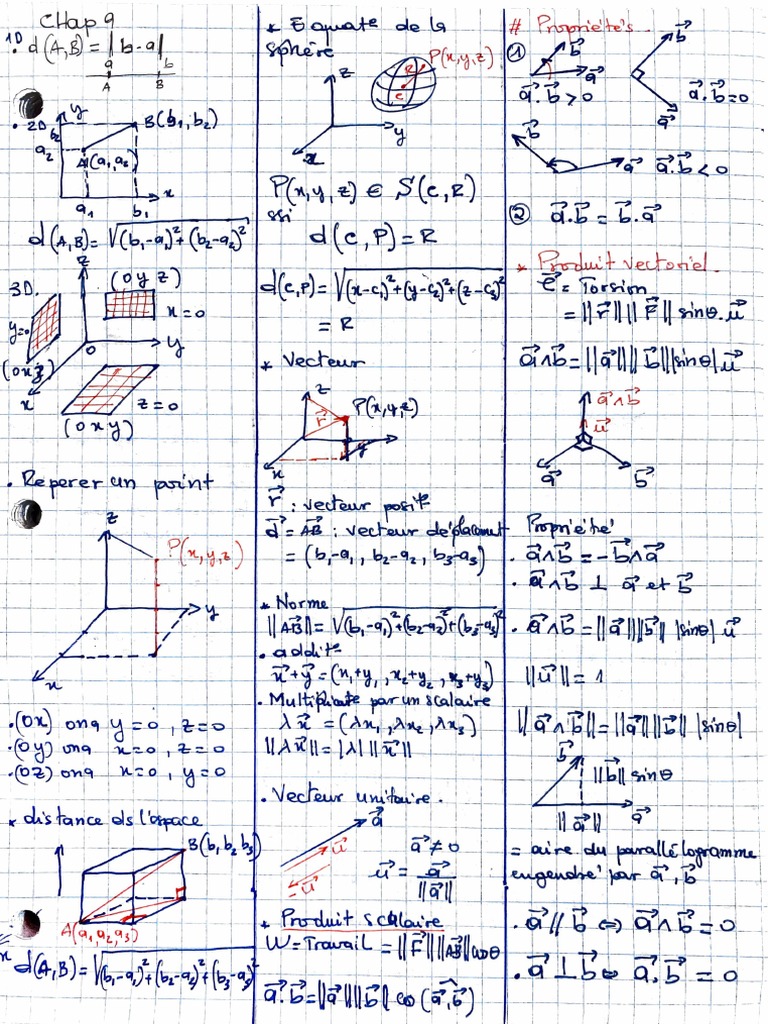 CHap 9
1D
. d(A,B) = |b-a|
a b
A B
. 2D y
b₂ B(b₁, b₂)
a₂ A(a₁, a₂)
x
a₁ b₁
d(A,B) = √(b₁-a₁)²+(b₂-a₂)²
3D. z (0yz)
x=0
y=0
0 y
(0xz)
x z=0
(0xy)
. Reperer un point
z
P(x,y,z)
y
x
.(0x) ona y=0, z=0
.(0y) ona x=0, z=0
.(0z) ona x=0, y=0
* distance ds l'espace
B(b₁ b₂ b₃)
A(a₁,a₂,a₃)
d(A,B) = √(b₁-a₁)²+(b₂-a₂)²+(b₃-a₃)²
* Equate de la
sphère
z P(x,y,z)
R
c
y
x
P(x,y,z) ∈ S(c,R)
ssi
d(c,P) = R
d(c,P) = √(x-c₁)²+(y-c₂)²+(z-c₃)²
= R
* Vecteur
z
P(x,y,z)
r⃗
y
x
r⃗ : vecteur posit°
d⃗ = AB⃗ : vecteur déplacmut
= (b₁-a₁, b₂-a₂, b₃-a₃)
* Norme
||AB⃗|| = √(b₁-a₁)²+(b₂-a₂)²+(b₃-a₃)²
. addit°
x⃗+y⃗ = (x₁+y₁, x₂+y₂, x₃+y₃)
. Multiplicate par un scalaire
λx⃗ = (λx₁, λx₂, λx₃)
||λx⃗|| = |λ| ||x⃗||
. Vecteur unitaire.
a⃗
u⃗ a⃗≠0
-u⃗ u⃗ = a⃗/||a⃗||
* Produit scalaire
W=Travail = ||F⃗|| ||AB⃗|| cosθ
a⃗.b⃗ = ||a⃗|| ||b⃗|| cos(a⃗,b⃗)
# Propriétés
① b⃗ b⃗
a⃗
a⃗.b⃗>0 a⃗ a⃗.b⃗=0
b⃗
a⃗ a⃗.b⃗<0
② a⃗.b⃗ = b⃗.a⃗
* Produit vectoriel.
τ⃗ = Torsion
= ||r⃗|| ||F⃗|| sinθ.u⃗
a⃗∧b⃗ = ||a⃗|| ||b⃗|| |sinθ| u⃗
a⃗∧b⃗
u⃗
a⃗ b⃗
Propriété
. a⃗∧b⃗ = -b⃗∧a⃗
. a⃗∧b⃗ ⊥ a⃗ et b⃗
. a⃗∧b⃗ = ||a⃗|| ||b⃗|| |sinθ| u⃗
||u⃗|| = 1
||a⃗∧b⃗|| = ||a⃗|| ||b⃗|| |sinθ|
b⃗
||b⃗|| sinθ
a⃗
||a⃗||
= aire du parallélogramme
engendré par a⃗, b⃗
. a⃗ // b⃗ ⇔ a⃗∧b⃗ = 0
. a⃗ ⊥ b⃗ ⇔ a⃗.b⃗ = 0